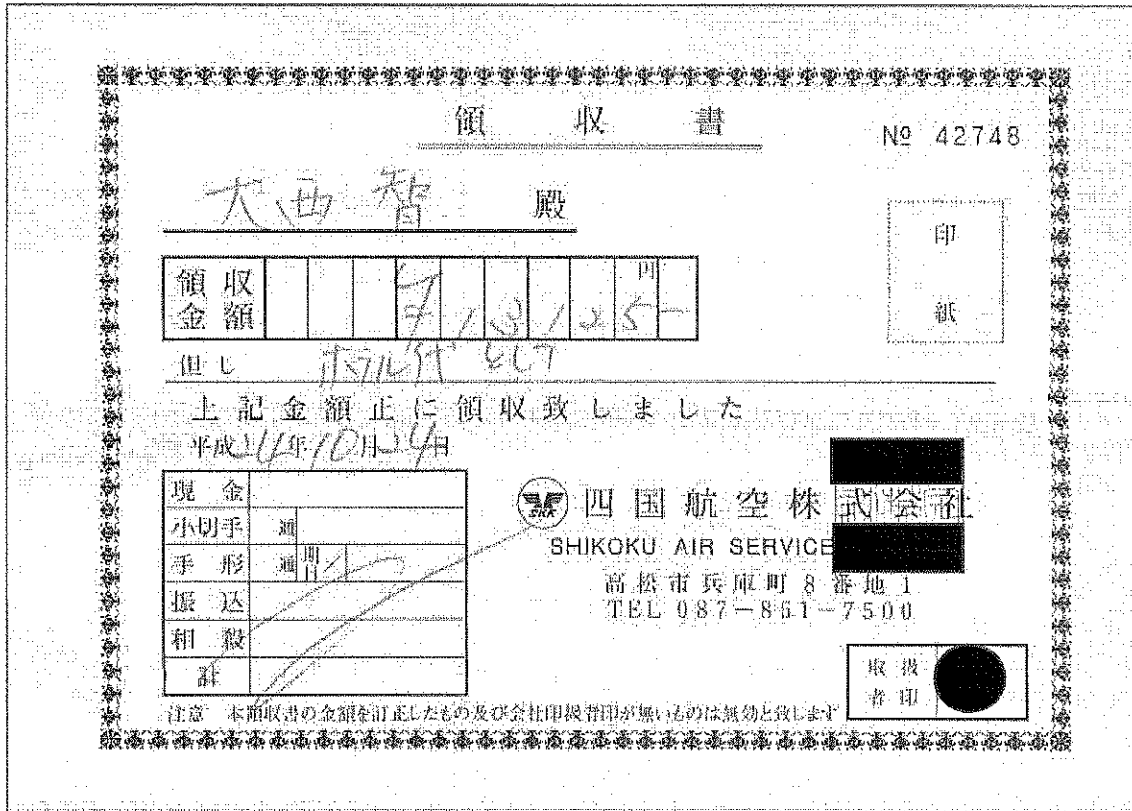 領収書
№ 42748
大西智 殿
印紙
領収金額 円
¥181,25-
但し ホテル代として
上記金額正に領収致しました
平成24年10月24日
現金
小切手 通
手形 通 期日
振込
相殺
計
四国航空株式会社
SHIKOKU AIR SERVICE
高松市兵庫町8番地1
TEL 087-851-7500
取扱者印
注意 本領収書の金額を訂正したもの及び会社印扱者印が無いものは無効と致します